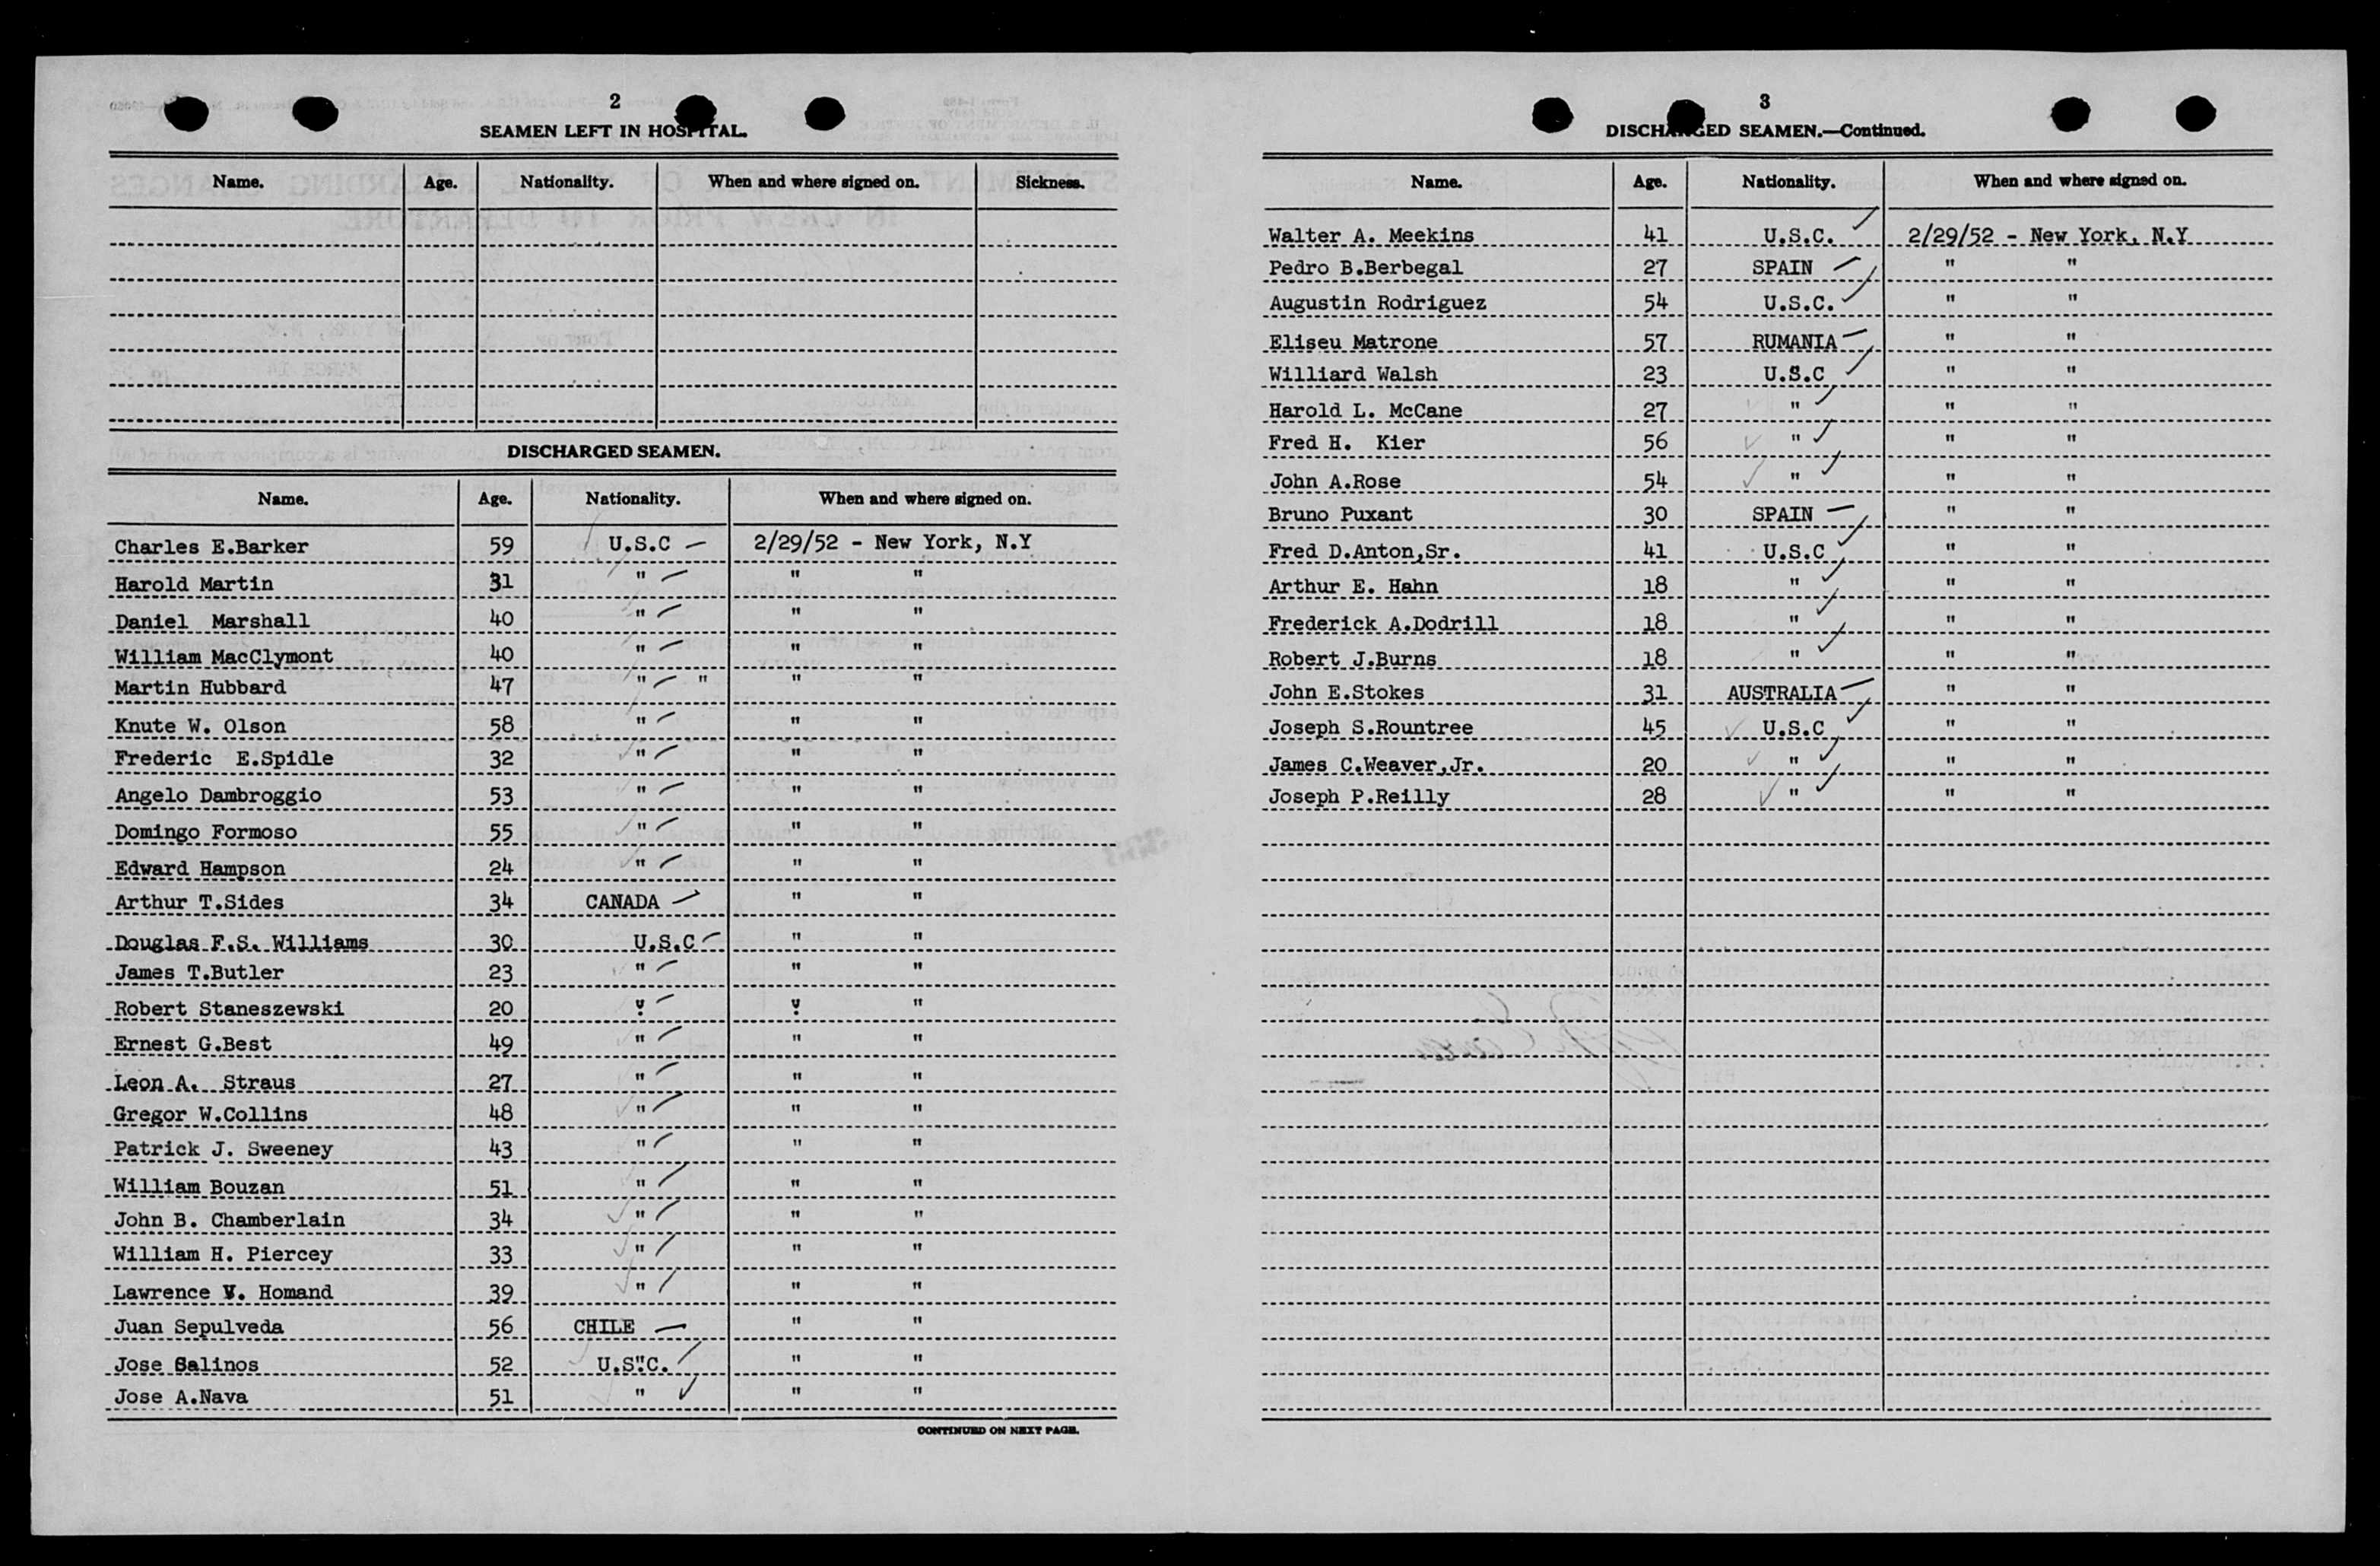 2
SEAMEN LEFT IN HOSPITAL.
Name. Age. Nationality. When and where signed on. Sickness.
DISCHARGED SEAMEN.
Name. Age. Nationality. When and where signed on.
Charles E.Barker 59 U.S.C 2/29/52 - New York, N.Y
Harold Martin 31 " " "
Daniel Marshall 40 " " "
William MacClymont 40 " " "
Martin Hubbard 47 " " " "
Knute W. Olson 58 " " "
Frederic E.Spidle 32 " " "
Angelo Dambroggio 53 " " "
Domingo Formoso 55 " " "
Edward Hampson 24 " " "
Arthur T.Sides 34 CANADA " "
Douglas F.S. Williams 30 U.S.C " "
James T.Butler 23 " " "
Robert Staneszewski 20 " " "
Ernest G.Best 49 " " "
Leon A. Straus 27 " " "
Gregor W.Collins 48 " " "
Patrick J. Sweeney 43 " " "
William Bouzan 51 " " "
John B. Chamberlain 34 " " "
William H. Piercey 33 " " "
Lawrence V. Homand 39 " " "
Juan Sepulveda 56 CHILE " "
Jose Salinos 52 U.S".C. " "
Jose A.Nava 51 " " "
CONTINUED ON NEXT PAGE.
3
DISCHARGED SEAMEN.—Continued.
Name. Age. Nationality. When and where signed on.
Walter A. Meekins 41 U.S.C. 2/29/52 - New York, N.Y
Pedro B.Berbegal 27 SPAIN " "
Augustin Rodriguez 54 U.S.C. " "
Eliseu Matrone 57 RUMANIA " "
Williard Walsh 23 U.S.C " "
Harold L. McCane 27 " " "
Fred H. Kier 56 " " "
John A.Rose 54 " " "
Bruno Puxant 30 SPAIN " "
Fred D.Anton,Sr. 41 U.S.C " "
Arthur E. Hahn 18 " " "
Frederick A.Dodrill 18 " " "
Robert J.Burns 18 " " "
John E.Stokes 31 AUSTRALIA " "
Joseph S.Rountree 45 U.S.C " "
James C.Weaver,Jr. 20 " " "
Joseph P.Reilly 28 " " "